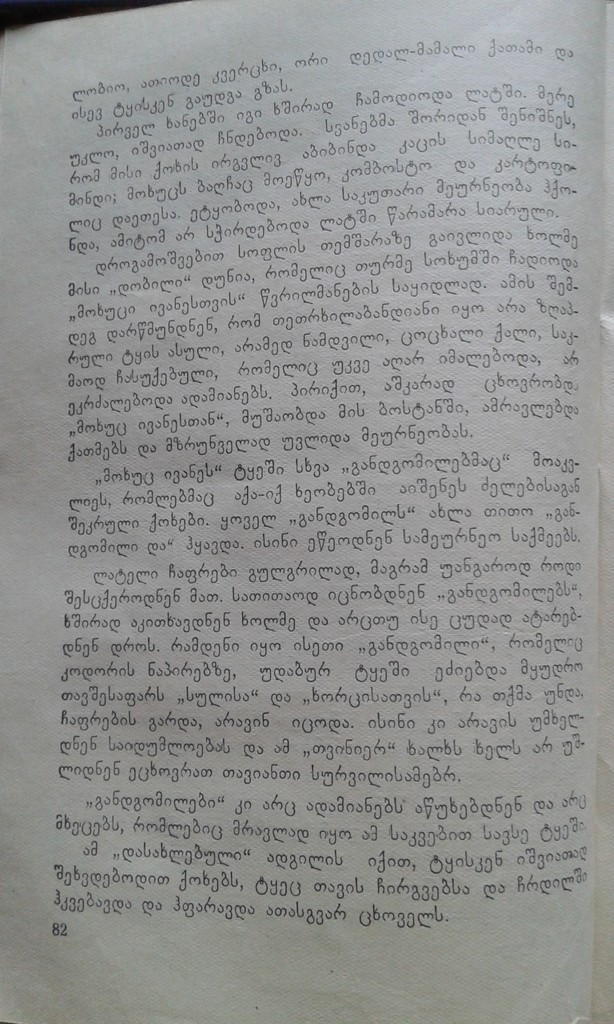 ლობიო, ათიოდე კვერცხი, ორი დედალ-მამალი ქათამი და
ისევ ტყისკენ გაუდგა გზას.
პირველ ხანებში იგი ხშირად ჩამოდიოდა ლატში. მერე
უკლო, იშვიათად ჩნდებოდა. სვანებმა შორიდან შენიშნეს,
რომ მისი ქოხის ირგვლივ აბიბინდა კაცის სიმაღლე სი-
მინდი; მოხუცს ბაღჩაც მოეწყო, კომბოსტო და კარტოფი-
ლიც დაეთესა. ეტყობოდა, ახლა საკუთარი მეურნეობა ჰქო-
ნდა, ამიტომ არ სჭირდებოდა ლატში წარამარა სიარული.
დროგამოშვებით სოფლის თემშარაზე გაივლიდა ხოლმე
მისი „დობილი“ დუნია, რომელიც თურმე სოხუმში ჩადიოდა
„მოხუცი ივანესთვის“ წვრილმანების საყიდლად. ამის შემ-
დეგ დარწმუნდნენ, რომ თეთრხილაბანდიანი იყო არა ზღაპ-
რული ტყის ასული, არამედ ნამდვილი, ცოცხალი ქალი, საკ-
მაოდ ჩასუქებული, რომელიც უკვე აღარ იმალებოდა, არ
ეკრძალებოდა ადამიანებს. პირიქით, აშკარად ცხოვრობდა
„მოხუც ივანესთან“, მუშაობდა მის ბოსტანში, ამრავლებდა
ქათმებს და მზრუნველად უვლიდა მეურნეობას.
„მოხუც ივანეს“ ტყეში სხვა „განდგომილებმაც“ მოაკვ-
ლიეს, რომლებმაც აქა-იქ ხეობებში აიშენეს ძელებისაგან
შეკრული ქოხები. ყოველ „განდგომილს“ ახლა თითო „გან-
დგომილი და“ ჰყავდა. ისინი ეწეოდნენ სამეურნეო საქმეებს.
ლატელი ჩაფრები გულგრილად, მაგრამ უანგაროდ როდი
შესცქეროდნენ მათ. სათითაოდ იცნობდნენ „განდგომილებს“,
ხშირად აკითხავდნენ ხოლმე და არცთუ ისე ცუდად ატარებ-
დნენ დროს. რამდენი იყო ისეთი „განდგომილი“, რომელიც
კოდორის ნაპირებზე, უდაბურ ტყეში ეძიებდა მყუდრო
თავშესაფარს „სულისა“ და „ხორცისათვის“, რა თქმა უნდა,
ჩაფრების გარდა, არავინ იცოდა. ისინი კი არავის უმხელ-
დნენ საიდუმლოებას და ამ „თვინიერ“ ხალხს ხელს არ უშ-
ლიდნენ ეცხოვრათ თავიანთი სურვილისამებრ.
„განდგომილები“ კი არც ადამიანებს აწუხებდნენ და არც
მხეცებს, რომლებიც მრავლად იყო ამ საკვებით სავსე ტყეში
ამ „დასახლებული“ ადგილის იქით, ტყისკენ იშვიათად
შეხვდებოდით ქოხებს, ტყეც თავის ჩირგვებსა და ჩრდილში
ჰკვებავდა და ჰფარავდა ათასგვარ ცხოველს.
82